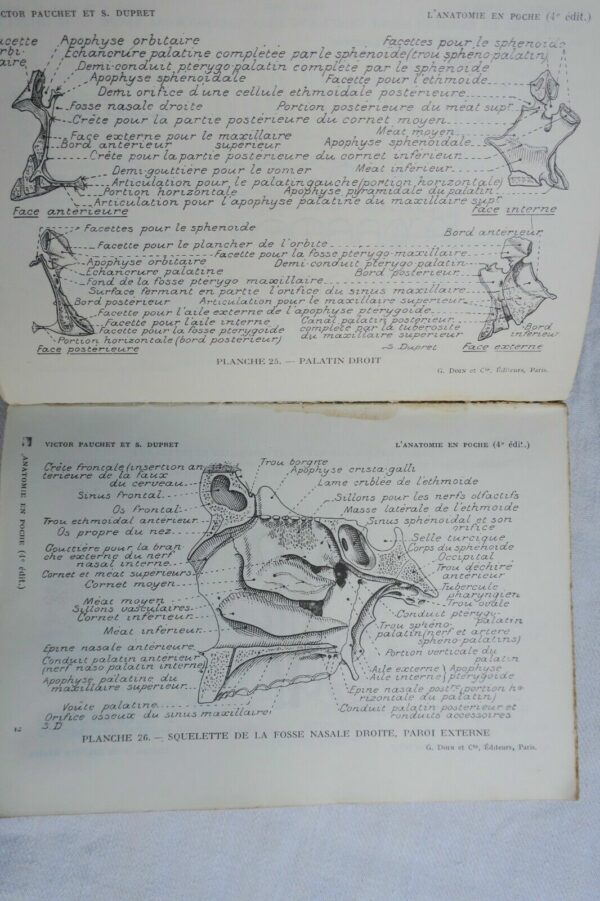 VICTOR PAUCHET ET S. DUPRET
L'ANATOMIE EN POCHE (4e édit.)
Facette
Apophyse orbitaire
Facettes pour le sphenoïde
Echancrure palatine completée par le sphenoïde (trou spheno palatin)
Demi-conduit pterygo-palatin complete par le sphenoïde
Apophyse sphenoïdale
Facette pour l'ethmoïde
Demi orifice d'une cellule ethmoïdale posterieure
Fosse nasale droite
Portion postérieure du meat supr
Crête pour la partie postérieure du cornet moyen
Face externe pour le maxillaire
Meat moyen
Bord antérieur
superieur
Apophyse sphenoïdale
Crête pour la partie posterieure du cornet inferieur
Demi-gouttière pour le vomer
Meat inferieur
Articulation pour le palatin gauche (portion horizontale)
Portion horizontale
Apophyse pyramidale du palatin
Articulation pour l'apophyse palatine du maxillaire supr
Face antérieure
Face interne
Facettes pour le sphenoïde
Bord anterieur
Facette pour le plancher de l'orbite
Facette pour la fosse pterygo-maxillaire
Apophyse orbitaire
Demi conduit pterygo palatin
Echancrure palatine
Bord postérieur
Fond de la fosse pterygo maxillaire
Surface fermant en partie l'orifice du sinus maxillaire
Bord postérieur
Articulation pour le maxillaire superieur
Facette pour l'aile externe de l'apophyse pterygoïde
Facette pour l'aile interne
Canal palatin postérieur
Facette pour la fosse pterygoïde
complété par la tuberosité
du maxillaire superieur
Portion horizontale (bord posterieur)
Bord
inferieur
Face postérieure
S. Dupret
Face externe
PLANCHE 25. — PALATIN DROIT
G. DOIN et Cie, Éditeurs, Paris.
VICTOR PAUCHET ET S. DUPRET
L'ANATOMIE EN POCHE (4e édit.)
ANATOMIE EN POCHE (4e édit.)
Crête frontale (insertion an
terieure de la faux
du cerveau
Sinus frontal
Os frontal
Trou ethmoïdal anterieur
Os propre du nez
Gouttière pour la bran
che externe du nerf
nasal interne
Cornet et meat superieurs
Cornet moyen
Méat moyen
Sillons vasculaires
Cornet inferieur
Méat inferieur
Epine nasale anterieure
Conduit palatin antérieur
(nerf naso palatin interne)
Apophyse palatine du
maxillaire superieur
Voûte palatine
Orifice osseux du sinus maxillaire
S.D
Trou borgne
Apophyse crista galli
Lame criblée de l'ethmoïde
Sillons pour les nerfs olfactifs
Masse latérale de l'ethmoïde
Sinus sphenoïdal et son
orifice
Selle turcique
Corps du sphenoïde
Occipital
Trou déchiré
antérieur
Tubercule
pharyngien
Trou ovale
Conduit pterygo-
palatin
Trou spheno-
palatin (nerf et artere
spheno-palatins)
Portion verticale du
palatin
Aile externe
Aile interne
Apophyse
pterygoïde
Epine nasale postre (portion ho
rizontale du palatin)
Conduit palatin posterieur et
conduits accessoires
2
PLANCHE 26. — SQUELETTE DE LA FOSSE NASALE DROITE, PAROI EXTERNE
G. DOIN et Cie, Éditeurs, Paris.